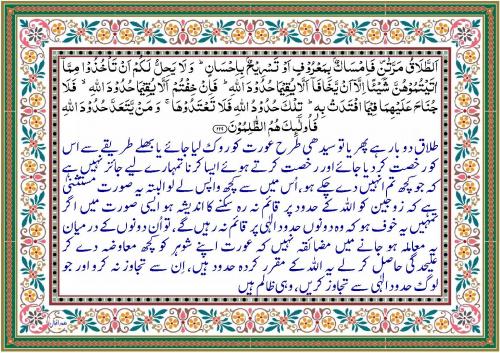 اَلطَّلَاقُ مَرَّتٰنِ۪ فَاِمْسَاكٌۢ بِمَعْرُوْفٍ اَوْ تَسْرِيْحٌۢ بِاِحْسَانٍ ؕ وَ لَا يَحِلُّ لَكُمْ اَنْ تَاْخُذُوْا مِمَّاۤ
اٰتَيْتُمُوْهُنَّ شَيْـًٔا اِلَّاۤ اَنْ يَّخَافَاۤ اَلَّا يُقِيْمَا حُدُوْدَ اللّٰهِ ؕ فَاِنْ خِفْتُمْ اَلَّا يُقِيْمَا حُدُوْدَ اللّٰهِ ۙ فَلَا
جُنَاحَ عَلَيْهِمَا فِيْمَا افْتَدَتْ بِهٖ ؕ تِلْكَ حُدُوْدُ اللّٰهِ فَلَا تَعْتَدُوْهَا ۚ وَ مَنْ يَّتَعَدَّ حُدُوْدَ اللّٰهِ
فَاُولٰٓىِٕكَ هُمُ الظّٰلِمُوْنَ ﴿۲۲۹﴾
طلاق دو بار ہے پھر یا تو سیدھی طرح عورت کو روک لیا جائے یا بھلے طریقے سے اس
کو رخصت کر دیا جائے اور رخصت کرتے ہوئے ایسا کرنا تمہارے لیے جائز نہیں ہے
کہ جو کچھ تم انہیں دے چکے ہو، اُس میں سے کچھ واپس لے لو البتہ یہ صورت مستثنیٰ
ہے کہ زوجین کو اللہ کے حدود پر قائم نہ رہ سکنے کا اندیشہ ہو ایسی صورت میں اگر
تمہیں یہ خوف ہو کہ وہ دونوں حدود الٰہی پر قائم نہ رہیں گے، تو اُن دونوں کے درمیان
یہ معاملہ ہو جانے میں مضائقہ نہیں کہ عورت اپنے شوہر کو کچھ معاوضہ دے کر
علیحدگی حاصل کر لے یہ اللہ کے مقرر کردہ حدود ہیں، اِن سے تجاوز نہ کرو اور جو
لوگ حدود الٰہی سے تجاوز کریں، وہی ظالم ہیں